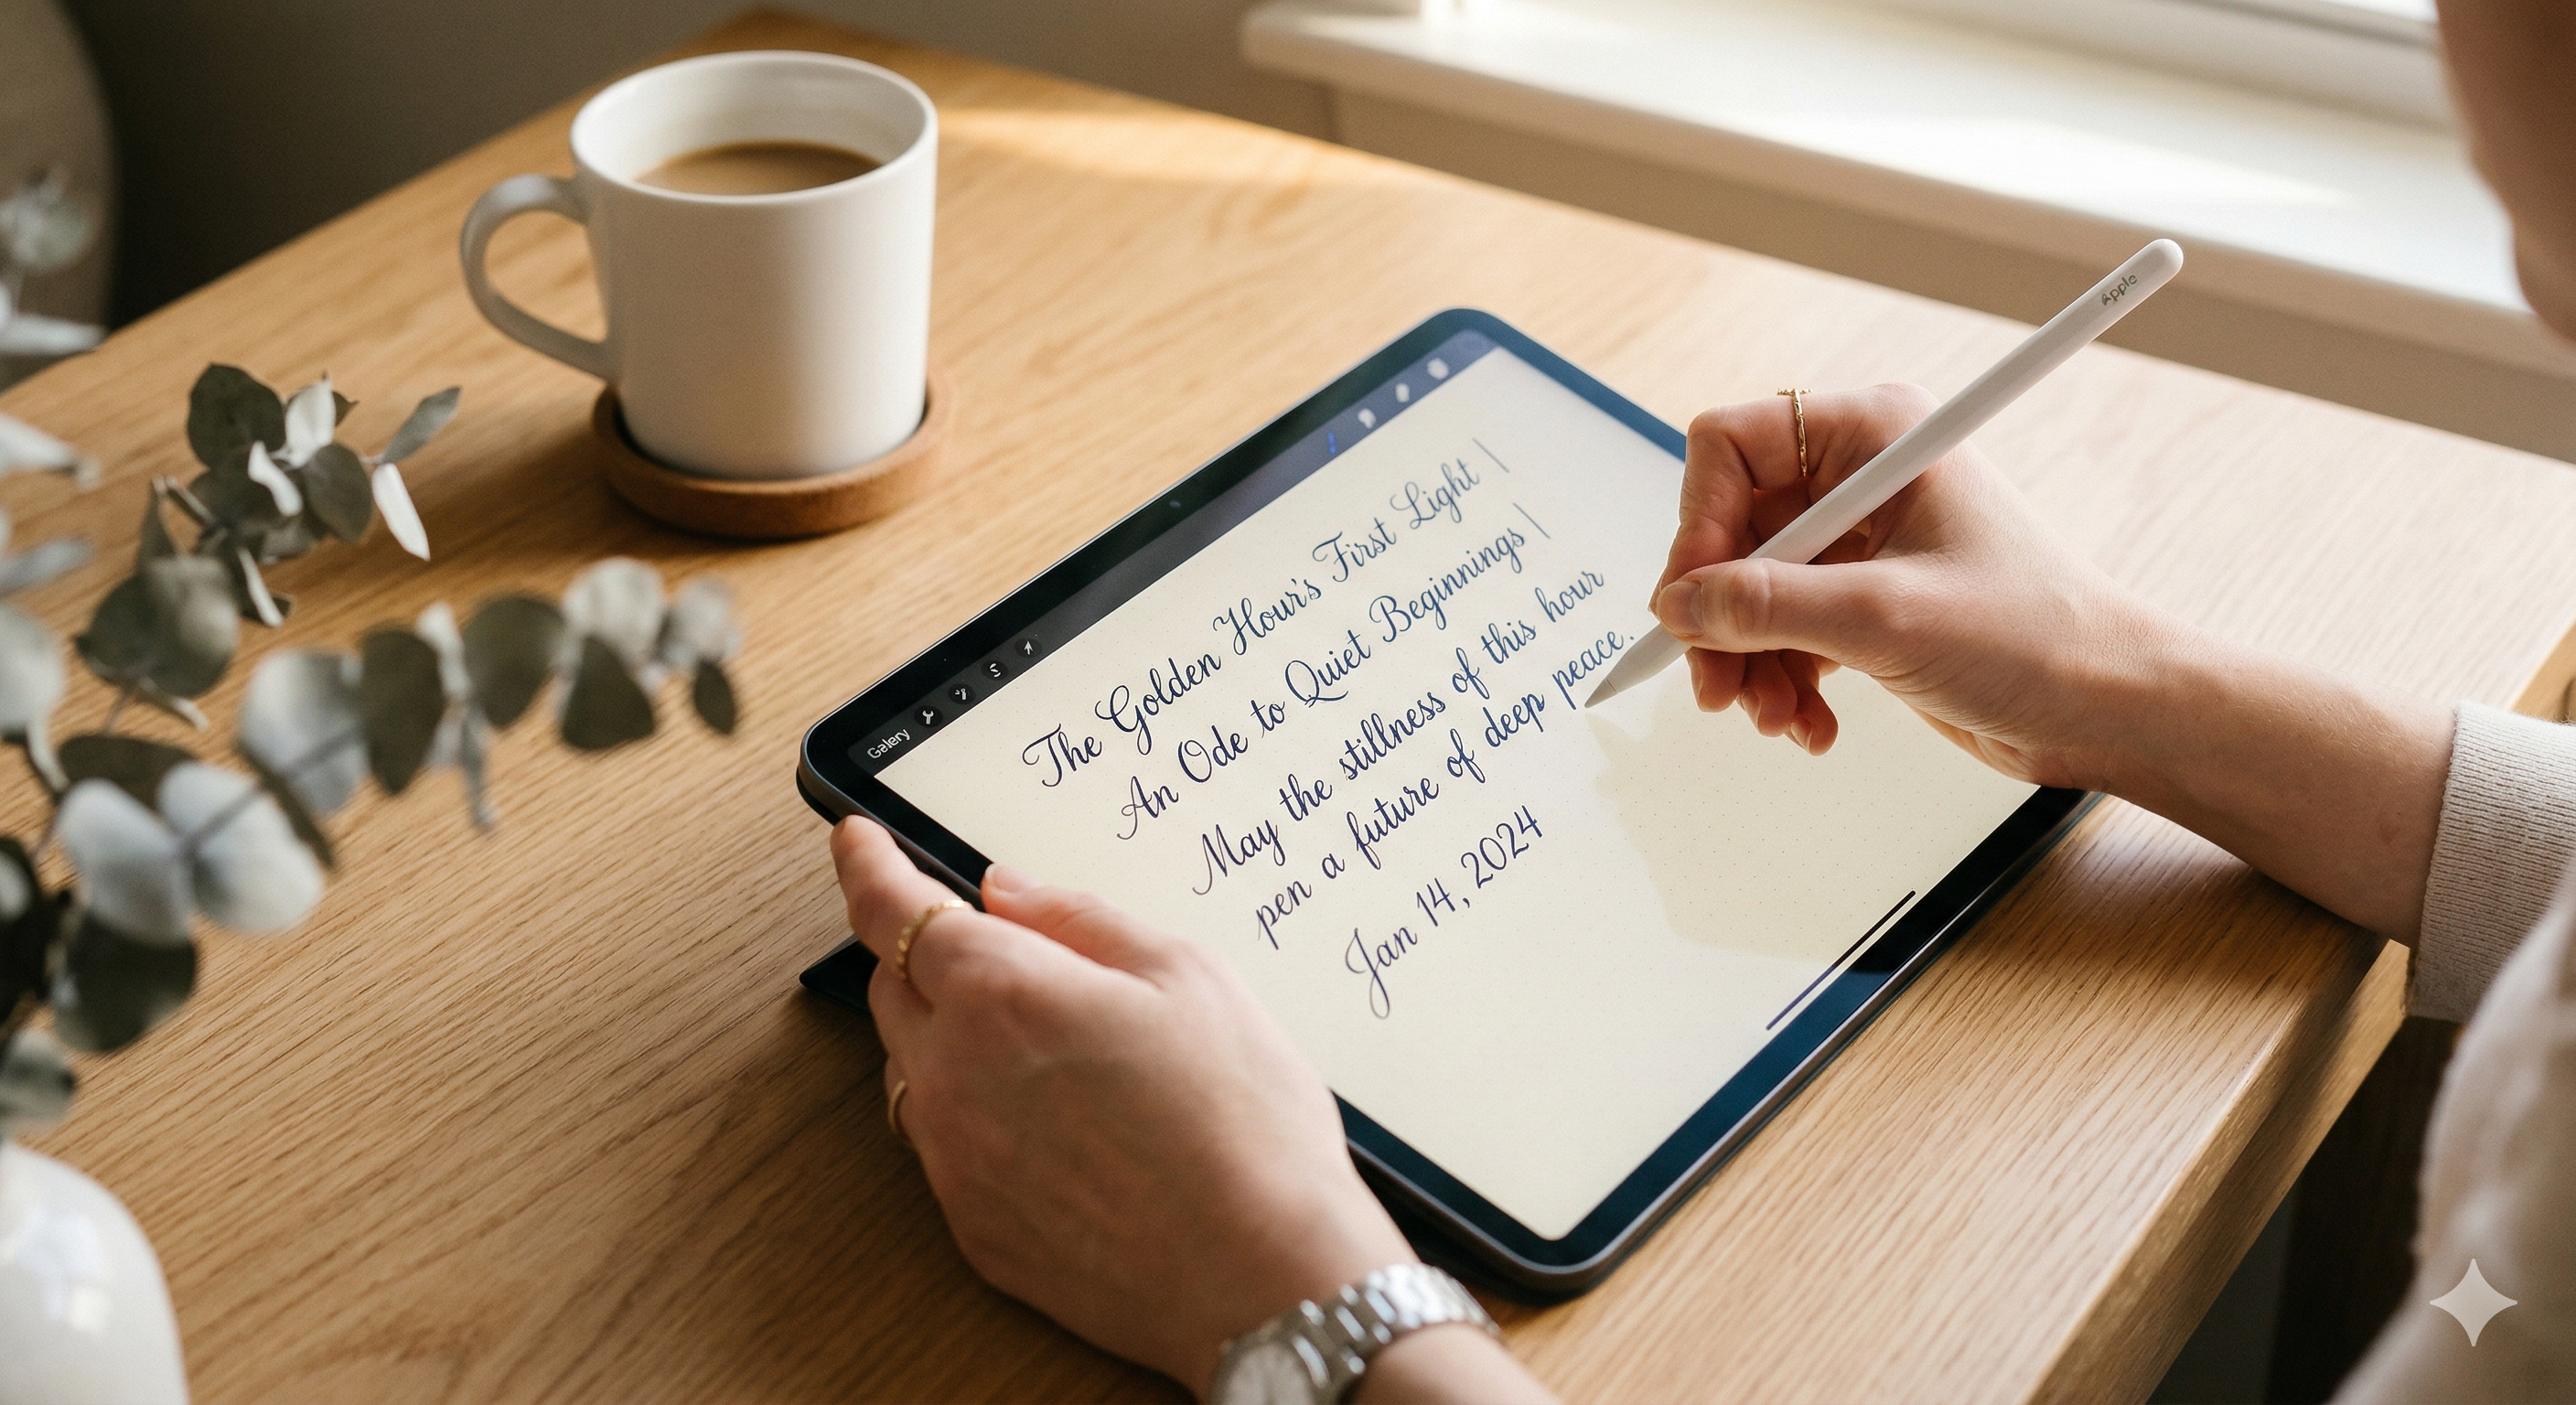 Apple
Galery
The Golden Hour's First Light |
An Ode to Quiet Beginnings |
May the stillness of this hour
pen a future of deep peace.
Jan 14, 2024